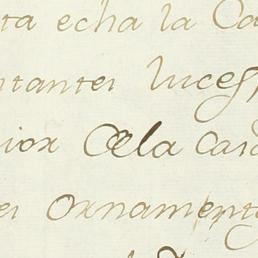 ta echa la Ca
ntantes luces
rior dela Cas
es Ornament